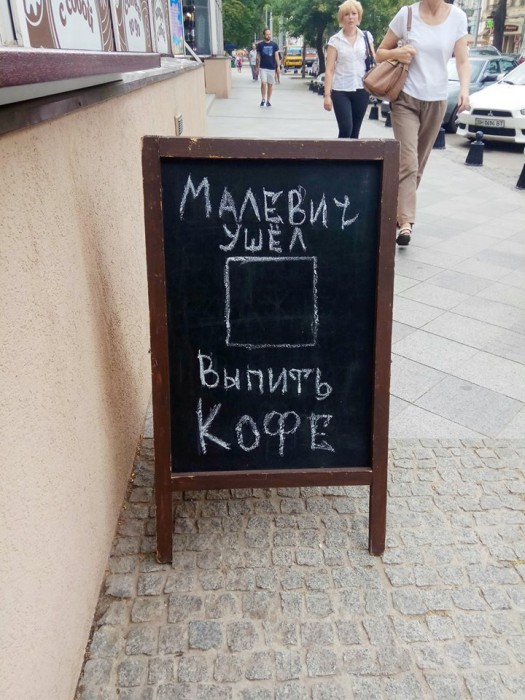 с собо
МАЛЕВИЧ
УШЁЛ
ВЫПИТЬ
КОФЕ